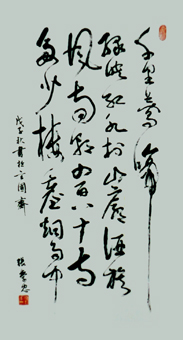 千里莺啼
绿映红水村山郭酒旗
风南朝四百八十寺
多少楼台烟雨中
戊子秋书于言圃斋
张学忠